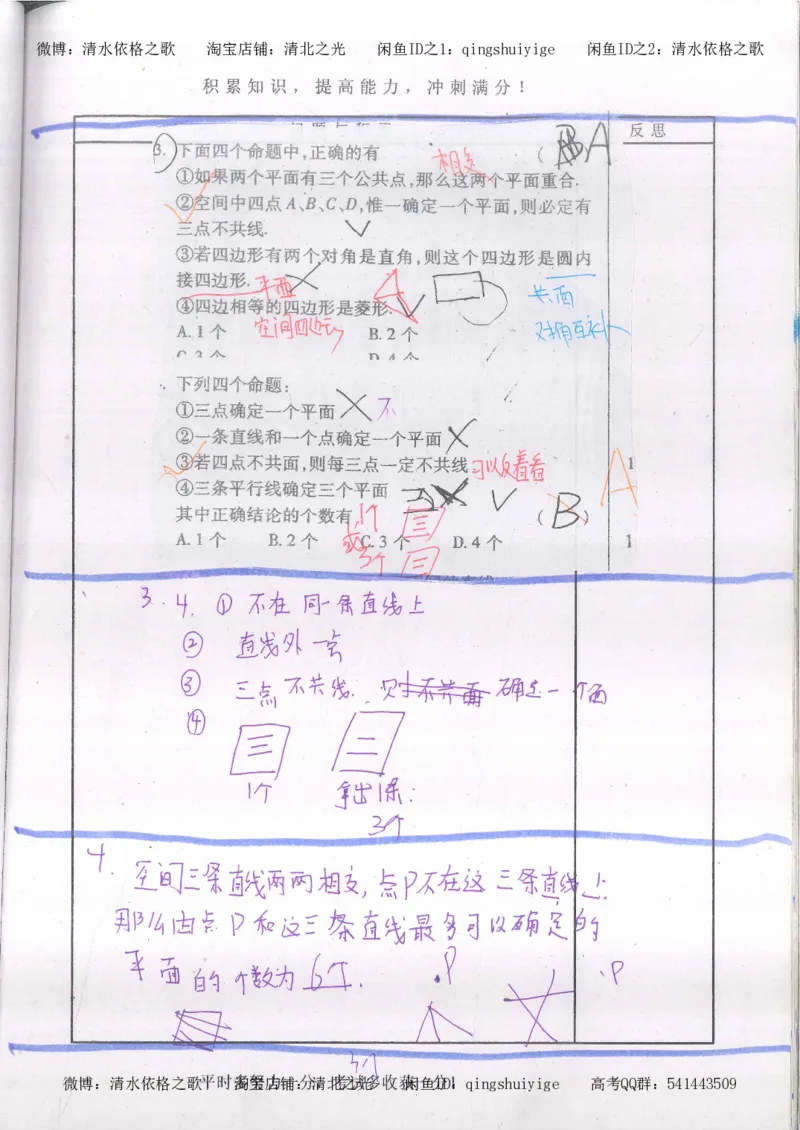 微博：清水依格之歌 淘宝店铺：清北之光 闲鱼ID之1：qingshuiyige 闲鱼ID之2：清水依格之歌
积累知识，提高能力，冲刺满分！
反思
3. 下面四个命题中,正确的有 ( A
相交
①如果两个平面有三个公共点,那么这两个平面重合.
②空间中四点 A、B、C、D,惟一确定一个平面,则必定有
三点不共线.
③若四边形有两个对角是直角,则这个四边形是圆内
接四边形. 平面
共面
④四边相等的四边形是菱形.
空间四边形
对角互补
A.1 个 B.2 个
C.3 个 D.4 个
下列四个命题:
①三点确定一个平面 不
②一条直线和一个点确定一个平面
③若四点不共面,则每三点一定不共线 可以反着看
④三条平行线确定三个平面
其中正确结论的个数有 ( B )
1个
或
3个
A
A.1 个 B.2 个 C.3 个 D.4 个
3. 4. ① 不在同一条直线上
② 直线外一点
③ 三点不共线. 则不共面 确定一个面
④
1个 拿出1条.
3个
4. 空间三条直线两两相交, 点P不在这三条直线上
那么由点P和这三条直线最多可以确定的
平面的个数为 6个.
P
P
3个
平时多努力一分，考试多收获一分！
微博：清水依格之歌 淘宝店铺：清北之光 闲鱼ID：qingshuiyige 高考QQ群：541443509